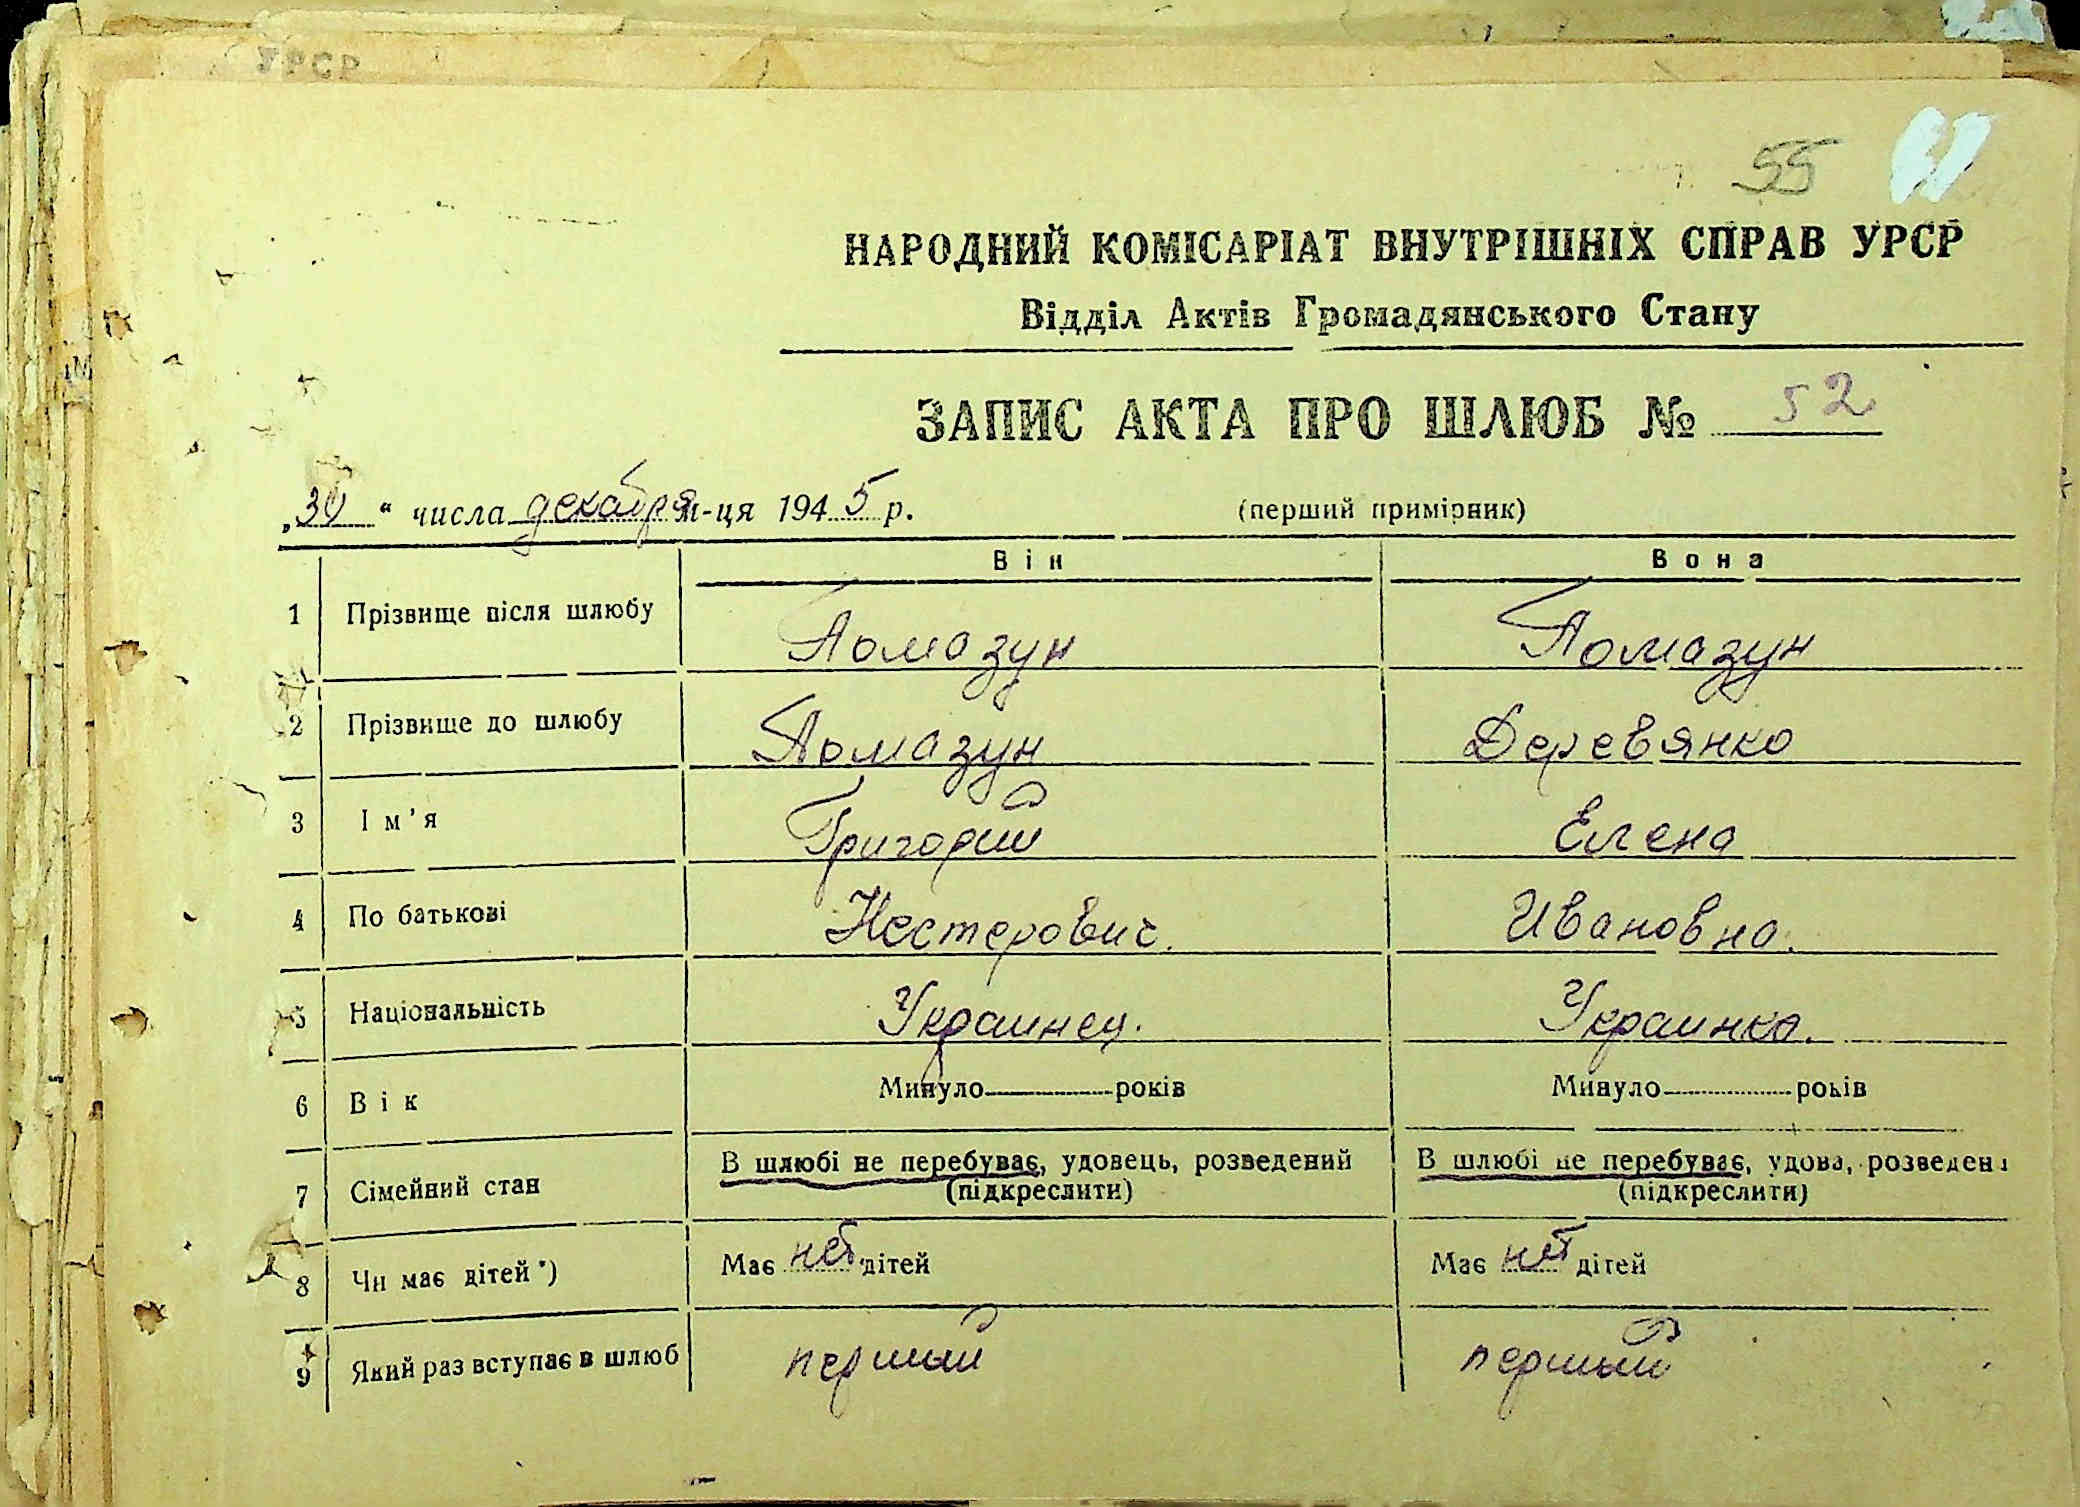 УРСР
55
НАРОДНИЙ КОМІСАРІАТ ВНУТРІШНІХ СПРАВ УРСР
Відділ Актів Громадянського Стану
ЗАПИС АКТА ПРО ШЛЮБ № 52
„30“ числа декабря м-ця 1945 р. (перший примірник)
Він Вона
1 Прізвище після шлюбу Помазун Помазун
2 Прізвище до шлюбу Помазун Деревянко
3 Ім'я Григорий Елена
4 По батькові Нестерович. Ивановна.
5 Національність Украинец. Украинка.
6 Вік Минуло років Минуло років
7 Сімейний стан В шлюбі не перебуває, удовець, розведений В шлюбі не перебуває, удова, розведена
(підкреслити) (підкреслити)
8 Чи має дітей*) Має нет дітей Має нет дітей
9 Який раз вступає в шлюб первый первый